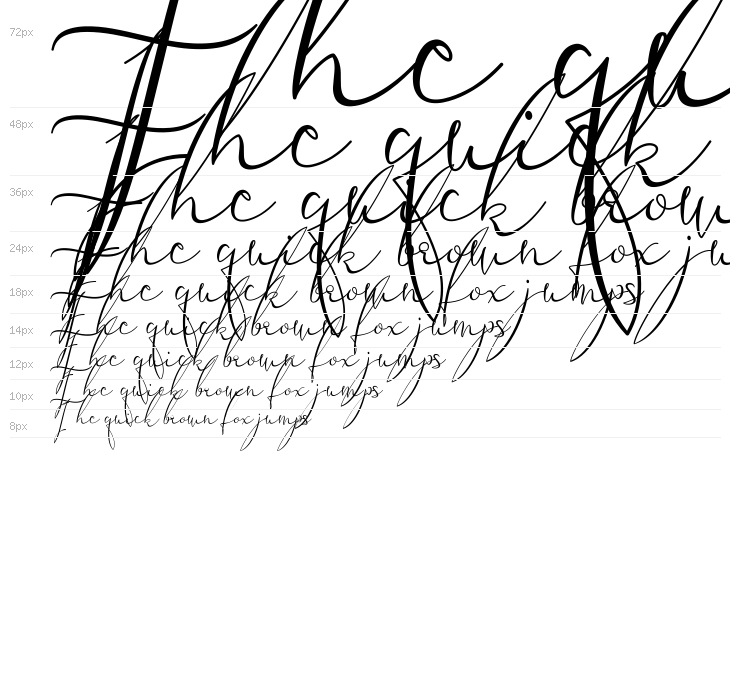 72px The qu
48px The quick
36px The quick brown
24px The quick brown fox ju
18px The quick brown fox jumps
14px The quick brown fox jumps
12px The quick brown fox jumps
10px The quick brown fox jumps
8px The quick brown fox jumps